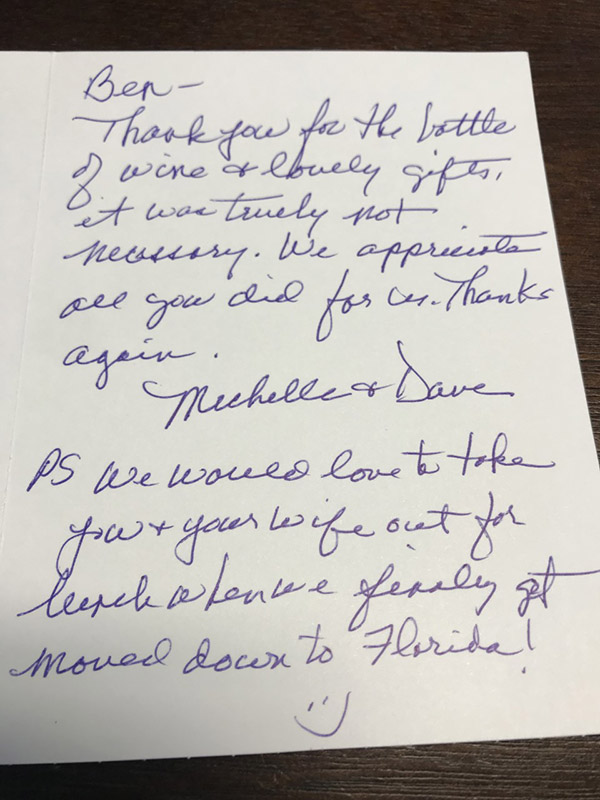 Ben-
Thank you for the bottle
of wine & lovely gifts,
it was truely not
necessary. We appriciate
all you did for us. Thanks
again.
Michelle & Dave
PS We would love to take
you + your wife out for
lunch when we finally get
moved down to Florida!
:)